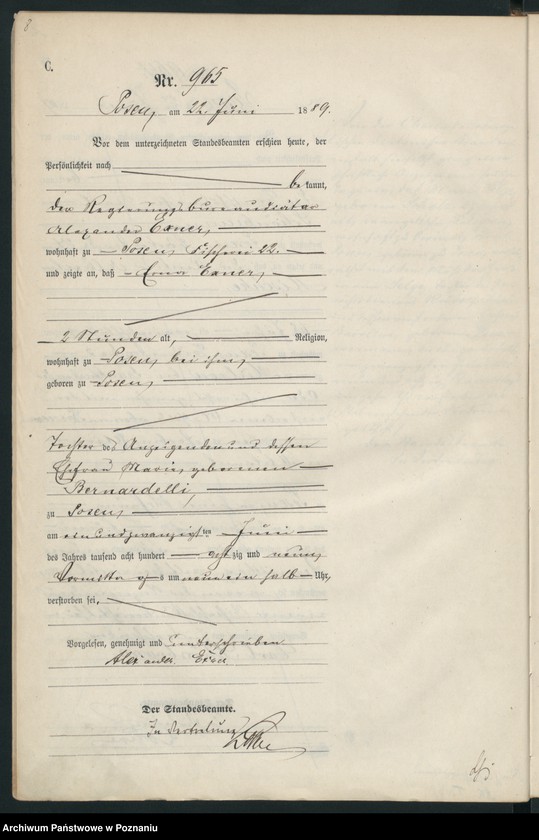 8
C.
Nr. 965
Posen, am 22. Juni 1889.
Vor dem unterzeichneten Standesbeamten erschien heute, der
Persönlichkeit nach
be kannt,
der Regierungsbureaudiätar
Alexander Exner,
wohnhaft zu Posen, Fischerei 22.
und zeigte an, daß Erna Exner,
2 Stunden alt, Religion,
wohnhaft zu Posen, bei ihm,
geboren zu Posen,
Tochter des Anzeigenden und dessen
Ehefrau Marie, geborenen
Bernardelli,
zu Posen,
am einundzwanzigsten Juni
des Jahres tausend acht hundert achtzig und neun,
Vormittags um neunein halb Uhr,
verstorben sei,
Vorgelesen, genehmigt und unterschrieben
Alexander Exner
Der Standesbeamte.
In Vertretung
Archiwum Państwowe w Poznaniu